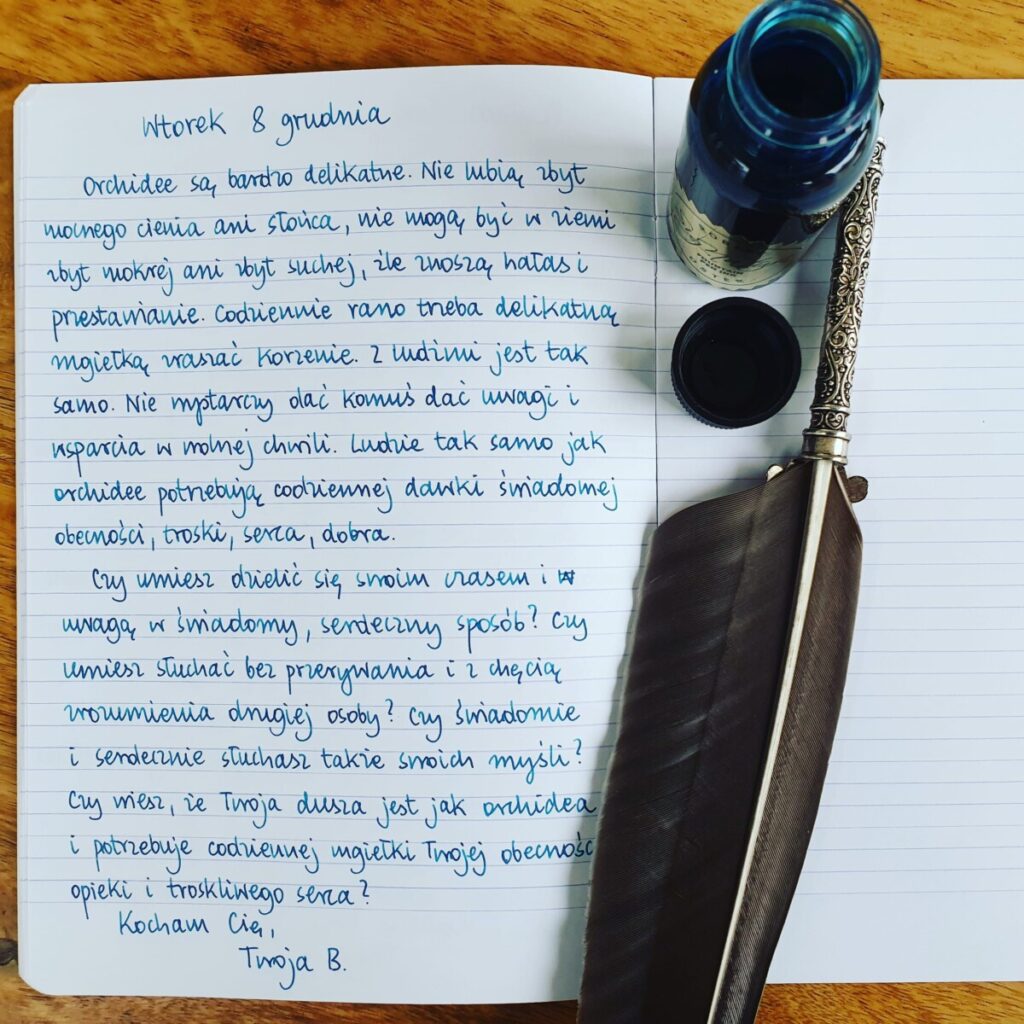 Wtorek 8 grudnia
Orchidee są bardzo delikatne. Nie lubią zbyt
mocnego cienia ani słońca, nie mogą być w ziemi
zbyt mokrej ani zbyt suchej, źle znoszą hałas i
przestawianie. Codziennie rano trzeba delikatną
mgiełką zraszać korzenie. Z ludźmi jest tak
samo. Nie wystarczy dać komuś dać uwagi i
wsparcia w wolnej chwili. Ludzie tak samo jak
orchidee potrzebują codziennej dawki świadomej
obecności, troski, serca, dobra.
Czy umiesz dzielić się swoim czasem i
uwagą w świadomy, serdeczny sposób? Czy
umiesz słuchać bez przerywania i z chęcią
zrozumienia drugiej osoby? Czy świadomie
i serdecznie słuchasz także swoich myśli?
Czy wiesz, że Twoja dusza jest jak orchidea
i potrzebuje codziennej mgiełki Twojej obecności
opieki i troskliwego serca?
Kocham Cię,
Twoja B.